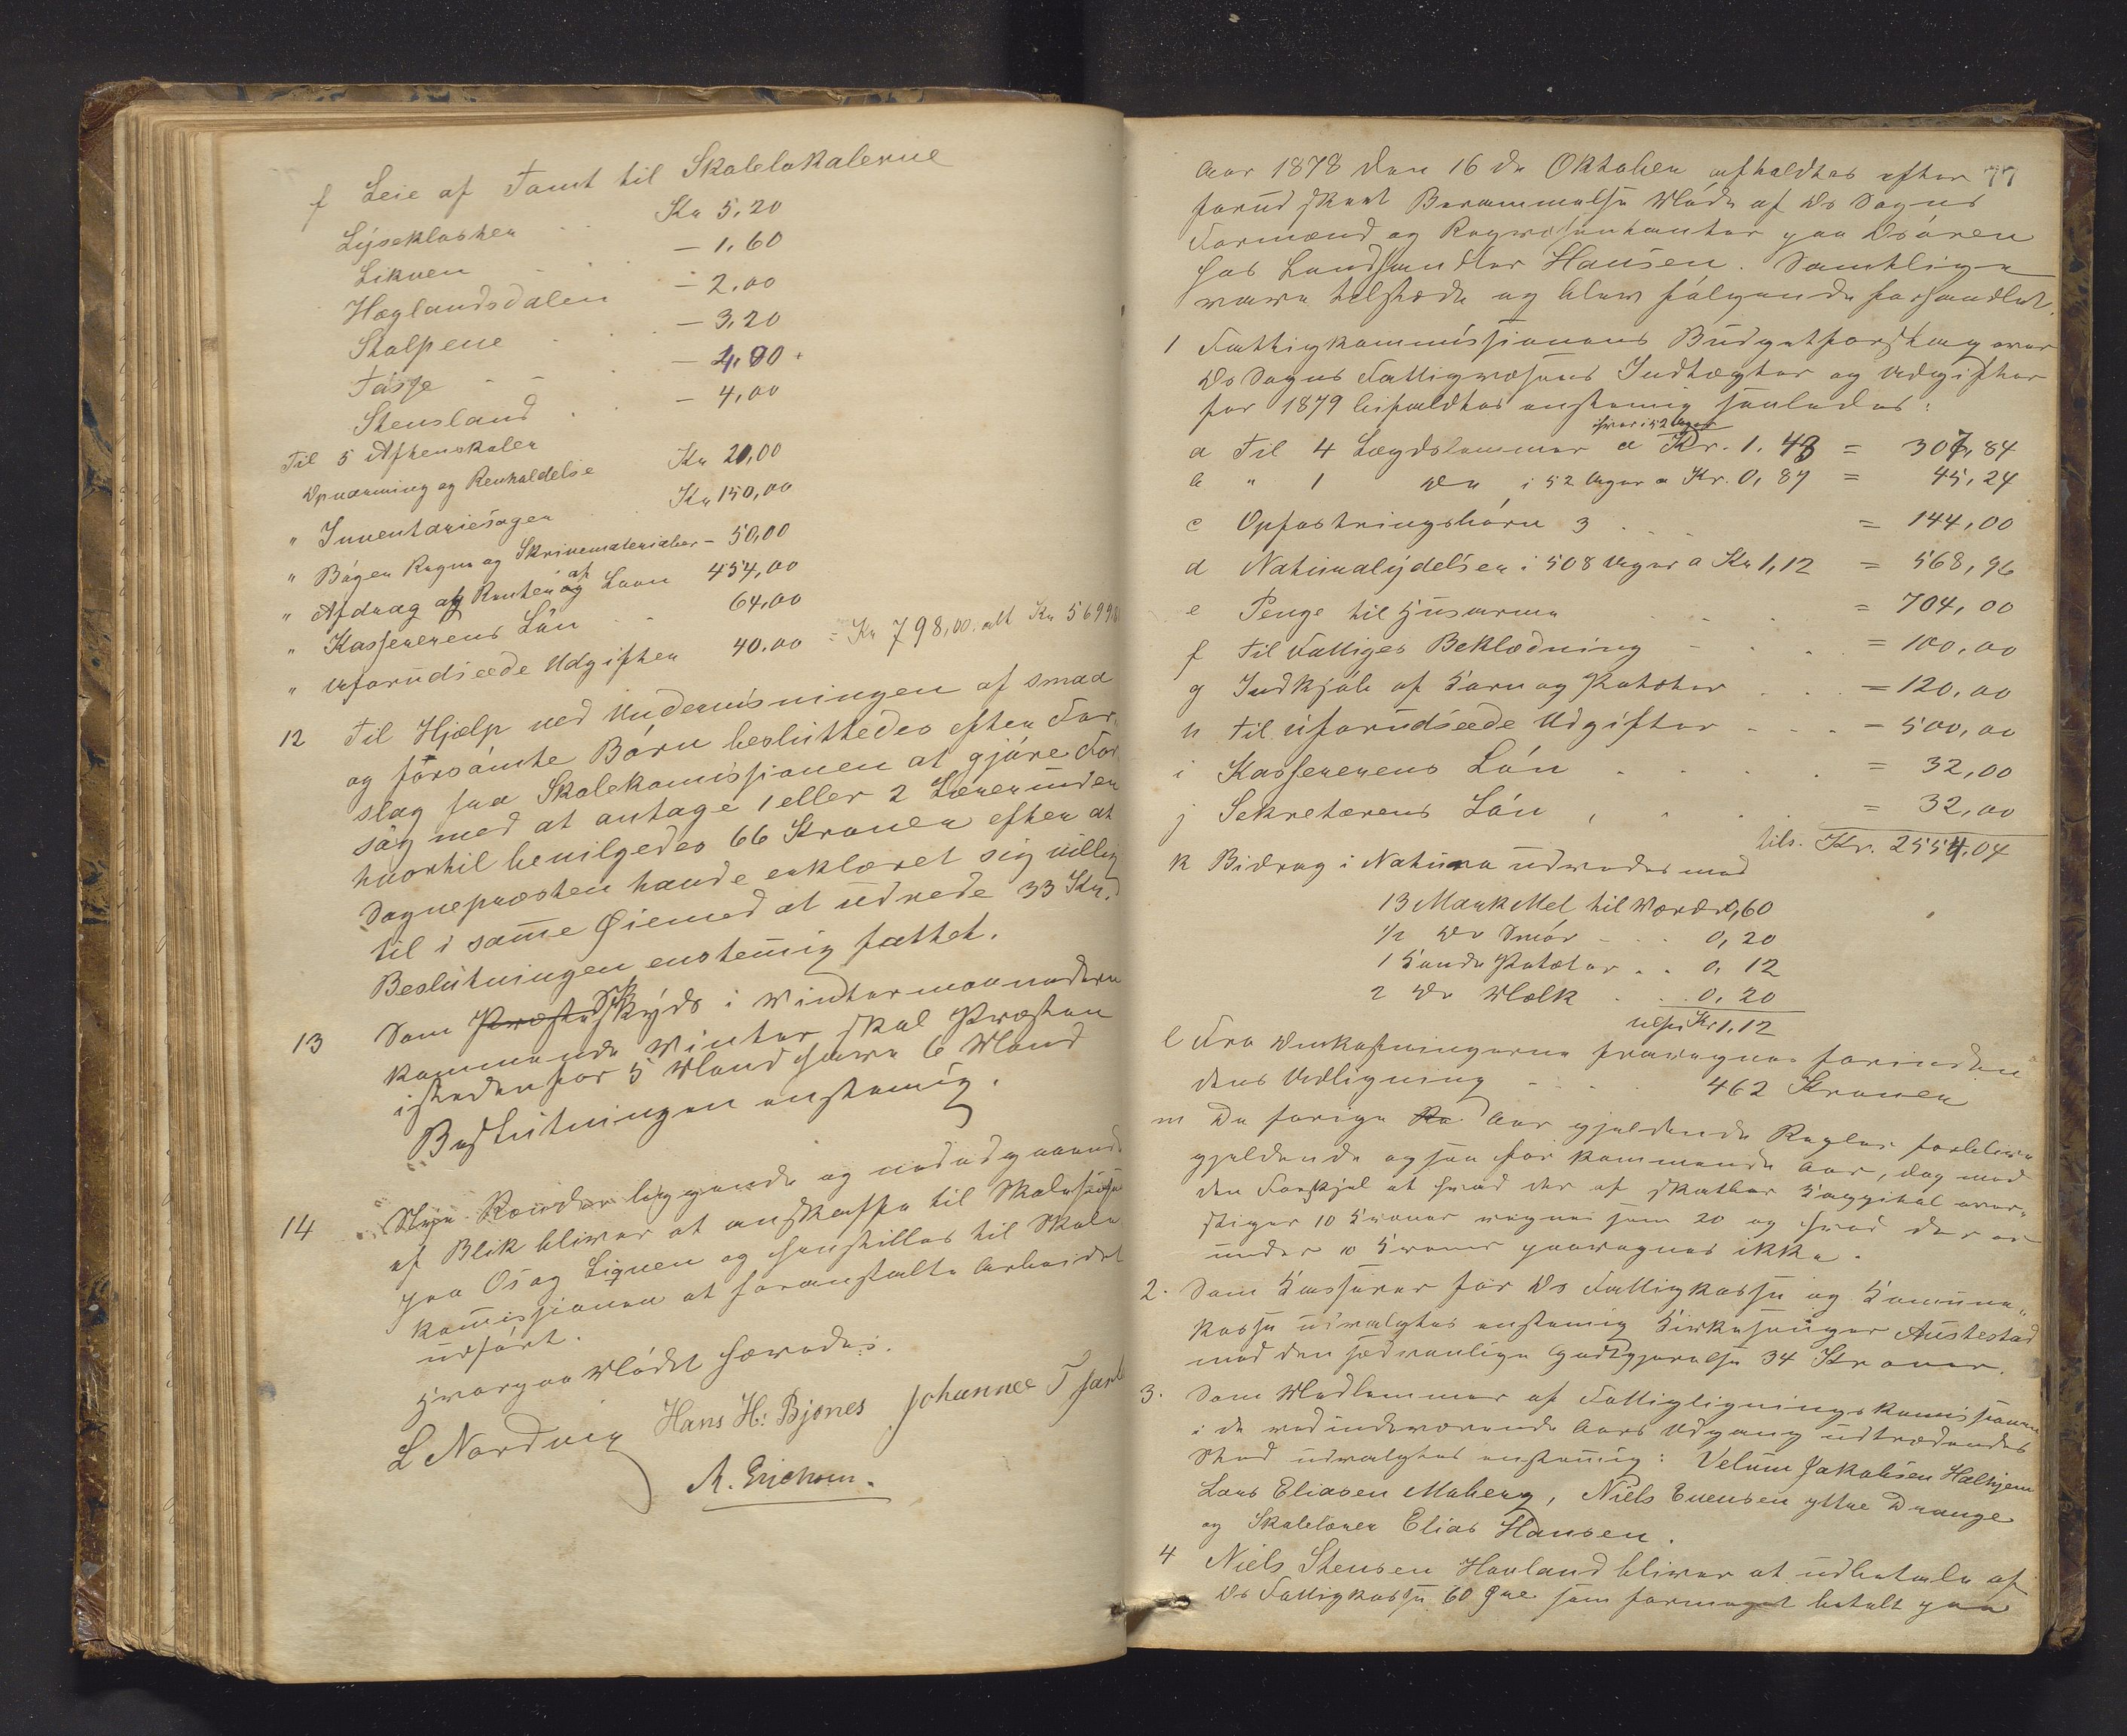 f Leie af Tomt til Skolelokalerne
Lysekloster . . Kr 5,20
Likven — 1,60
Hæglandsdalen — 2,00
Skolpene — 3,20
Tøsse — 4,00
Stensland . — 4,00
Til 5 Aftenskoler
Opvarming og Renholdelse Kr 20,00
" Inventariesager Kr 150,00
" Bøger Regne og Skrivematerialier – 50,00
" Afdrag og Renter af Laan 454,00
" Kassererens Løn . . 64,00
" Uforudseede Udgifter 40.00 = Kr 798,00. alt Kr
12 Til Hjælp ved Undervisningen af smaa
og forsømte Børn besluttedes efter For-
slag fra Skolekomissionen at gjøre For
søg med at antage 1 eller 2 Lærerinder
hvortil bevilgedes 66 Kroner efter at
Sognepræsten havde erklæret sig villig
til i samme Øiemed at udrede 33 Kr.
Beslutningen enstemig fattet.
13 Som Skyds i Vintermaanederne
kommende Vinter skal Præsten
istedenfor 5 Mand have 6 Mand
Beslutningen enstemig.
14 Nye Render liggende og nedadgaaende
af Blik bliver at anskaffe til Skolehuse
paa Os og Liqven og henstilles til Skole
komissionen at foranstalte Arbeidet
udført.
Hvorpaa Mødet hævedes.
L Nordvig Hans H: Bjønes Johannes T
A. Erichsen.
77
Aar 1878 den 16de Oktober afholdtes efter
forud skeet Berammelse Møde af Os Sogns
Formænd og Repræsentanter paa Osøren
hos Landhandler Hansen. Samtlige
vare tilstede og blev følgende forhandlet.
1 Fattigkommissionens Budgetforslag over
Os Sogns Fattigvæsens Indtægter og Udgifter
for 1879 bifaldtes enstemig saaledes:
hver i 52 Uger
a Til 4 Lægdslemmer a Kr. 1.48 = 307,84
b " 1 do i 52 Uger a Kr. 0,87 = 45,24
c Opfostringsbørn 3 . = 144,00
d Naturalydelser i 508 Uger a Kr 1,12 = 568,96
e Penge til Husarme = 704,00
f Til Fattiges Beklædning = 100,00
g Indkjøb af Korn og Poteter = 120,00
h Til uforudseede Udgifter = 500,00
i Kassererens Løn = 32,00
j Sekretærens Løn = 32,00
tils. Kr. 2554,04
k Bidrag i Natura udredes med
13 Mark Mel til Værd 0,60
1/2 do Smør - . . 0,20
1 Kande Poteter . . 0,12
2 do Mælk . . 0,20
tils. Kr 1,12
l Fra Udkastningerne fraregnes forinden
dens Udligning 462 Kroner
m De forige Aar gjeldende Regler forblive
gjeldende ogsaa for kommende Aar, dog med
den Forskjel at hvad der af skatbar Kappital over-
stiger 10 Kroner regnes som 20 og hvad der er
under 10 Kroner paaregnes ikke.
2. Som Kasserer for Os Fattigkasse og Komune-
kasse udvalgtes enstemig Kirkesanger Austestad
med den sedvanlige Godtgjørelse 34 Kroner.
3. Som Medlemmer af Fattigligningskomissionen
i de ved indeværende Aars Udgang udtrædendes
Sted udvalgtes enstemig: Velum Jakobsen Halhjem
Lars Eliasen Moberg, Niels Evensen ytre Drange
og Skolelærer Elias Hansen.
4 Niels Stensen Hauland bliver at udbetale af
Os Fattigkasse 60 Øre som formeget betalt paa